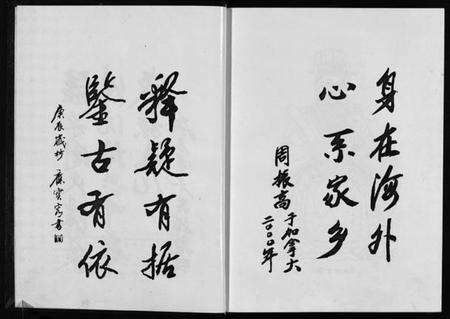 身在海外
心系家乡
周振高于加拿大
二〇〇〇年
释疑有据
鑒古有依
庚辰歲杪